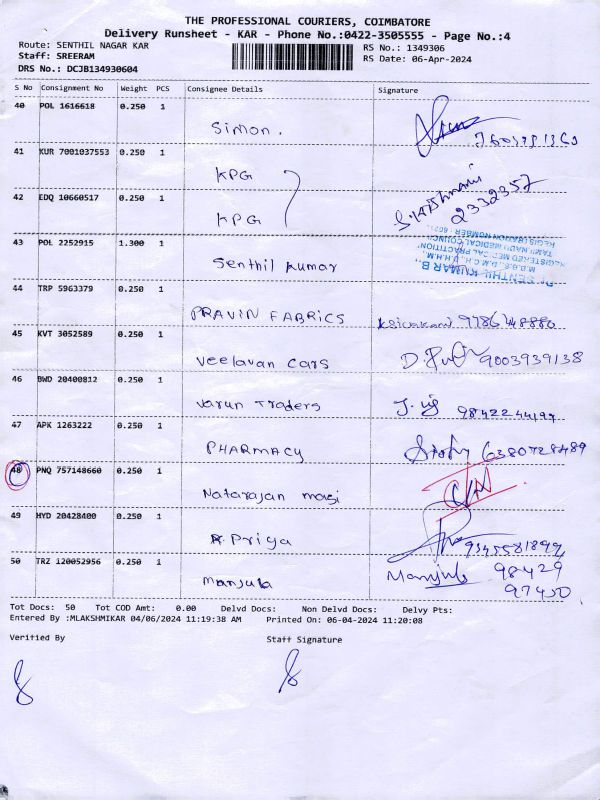 THE PROFESSIONAL COURIERS, COIMBATORE
Delivery Runsheet - KAR - Phone No.:0422-3505555 - Page No.:4
Route: SENTHIL NAGAR KAR
RS No.: 1349306
Staff: SREERAM
RS Date: 06-Apr-2024
DRS No.: DCJB134930604
S No Consignment No Weight PCS Consignee Details Signature
40 POL 1616618 0.250 1 Simon.
41 KUR 7001037553 0.250 1 KPG
42 EDQ 10660517 0.250 1 KPG 2332357
43 POL 2252915 1.300 1 Senthil kumar
Dr. SENTHIL KUMAR B.,
REGISTERED MEDICAL PRACTITION
TAMIL NADU MEDICAL COUNCIL
44 TRP 5963379 0.250 1 PRAVIN FABRICS
45 KVT 3052589 0.250 1 Veelavan cars 9003939138
46 BWD 20400812 0.250 1 Varun Traders
47 APK 1263222 0.250 1 PHARMACY 6380728489
48 PNQ 757148660 0.250 1 Natarajan magi
49 HYD 20428400 0.250 1 Priya
50 TRZ 120052956 0.250 1 Manjula Manjula 98429
Tot Docs: 50 Tot COD Amt: 0.00 Delvd Docs: Non Delvd Docs: Delvy Pts:
Entered By :MLAKSHMIKAR 04/06/2024 11:19:38 AM Printed On: 06-04-2024 11:20:08
Verified By Staff Signature